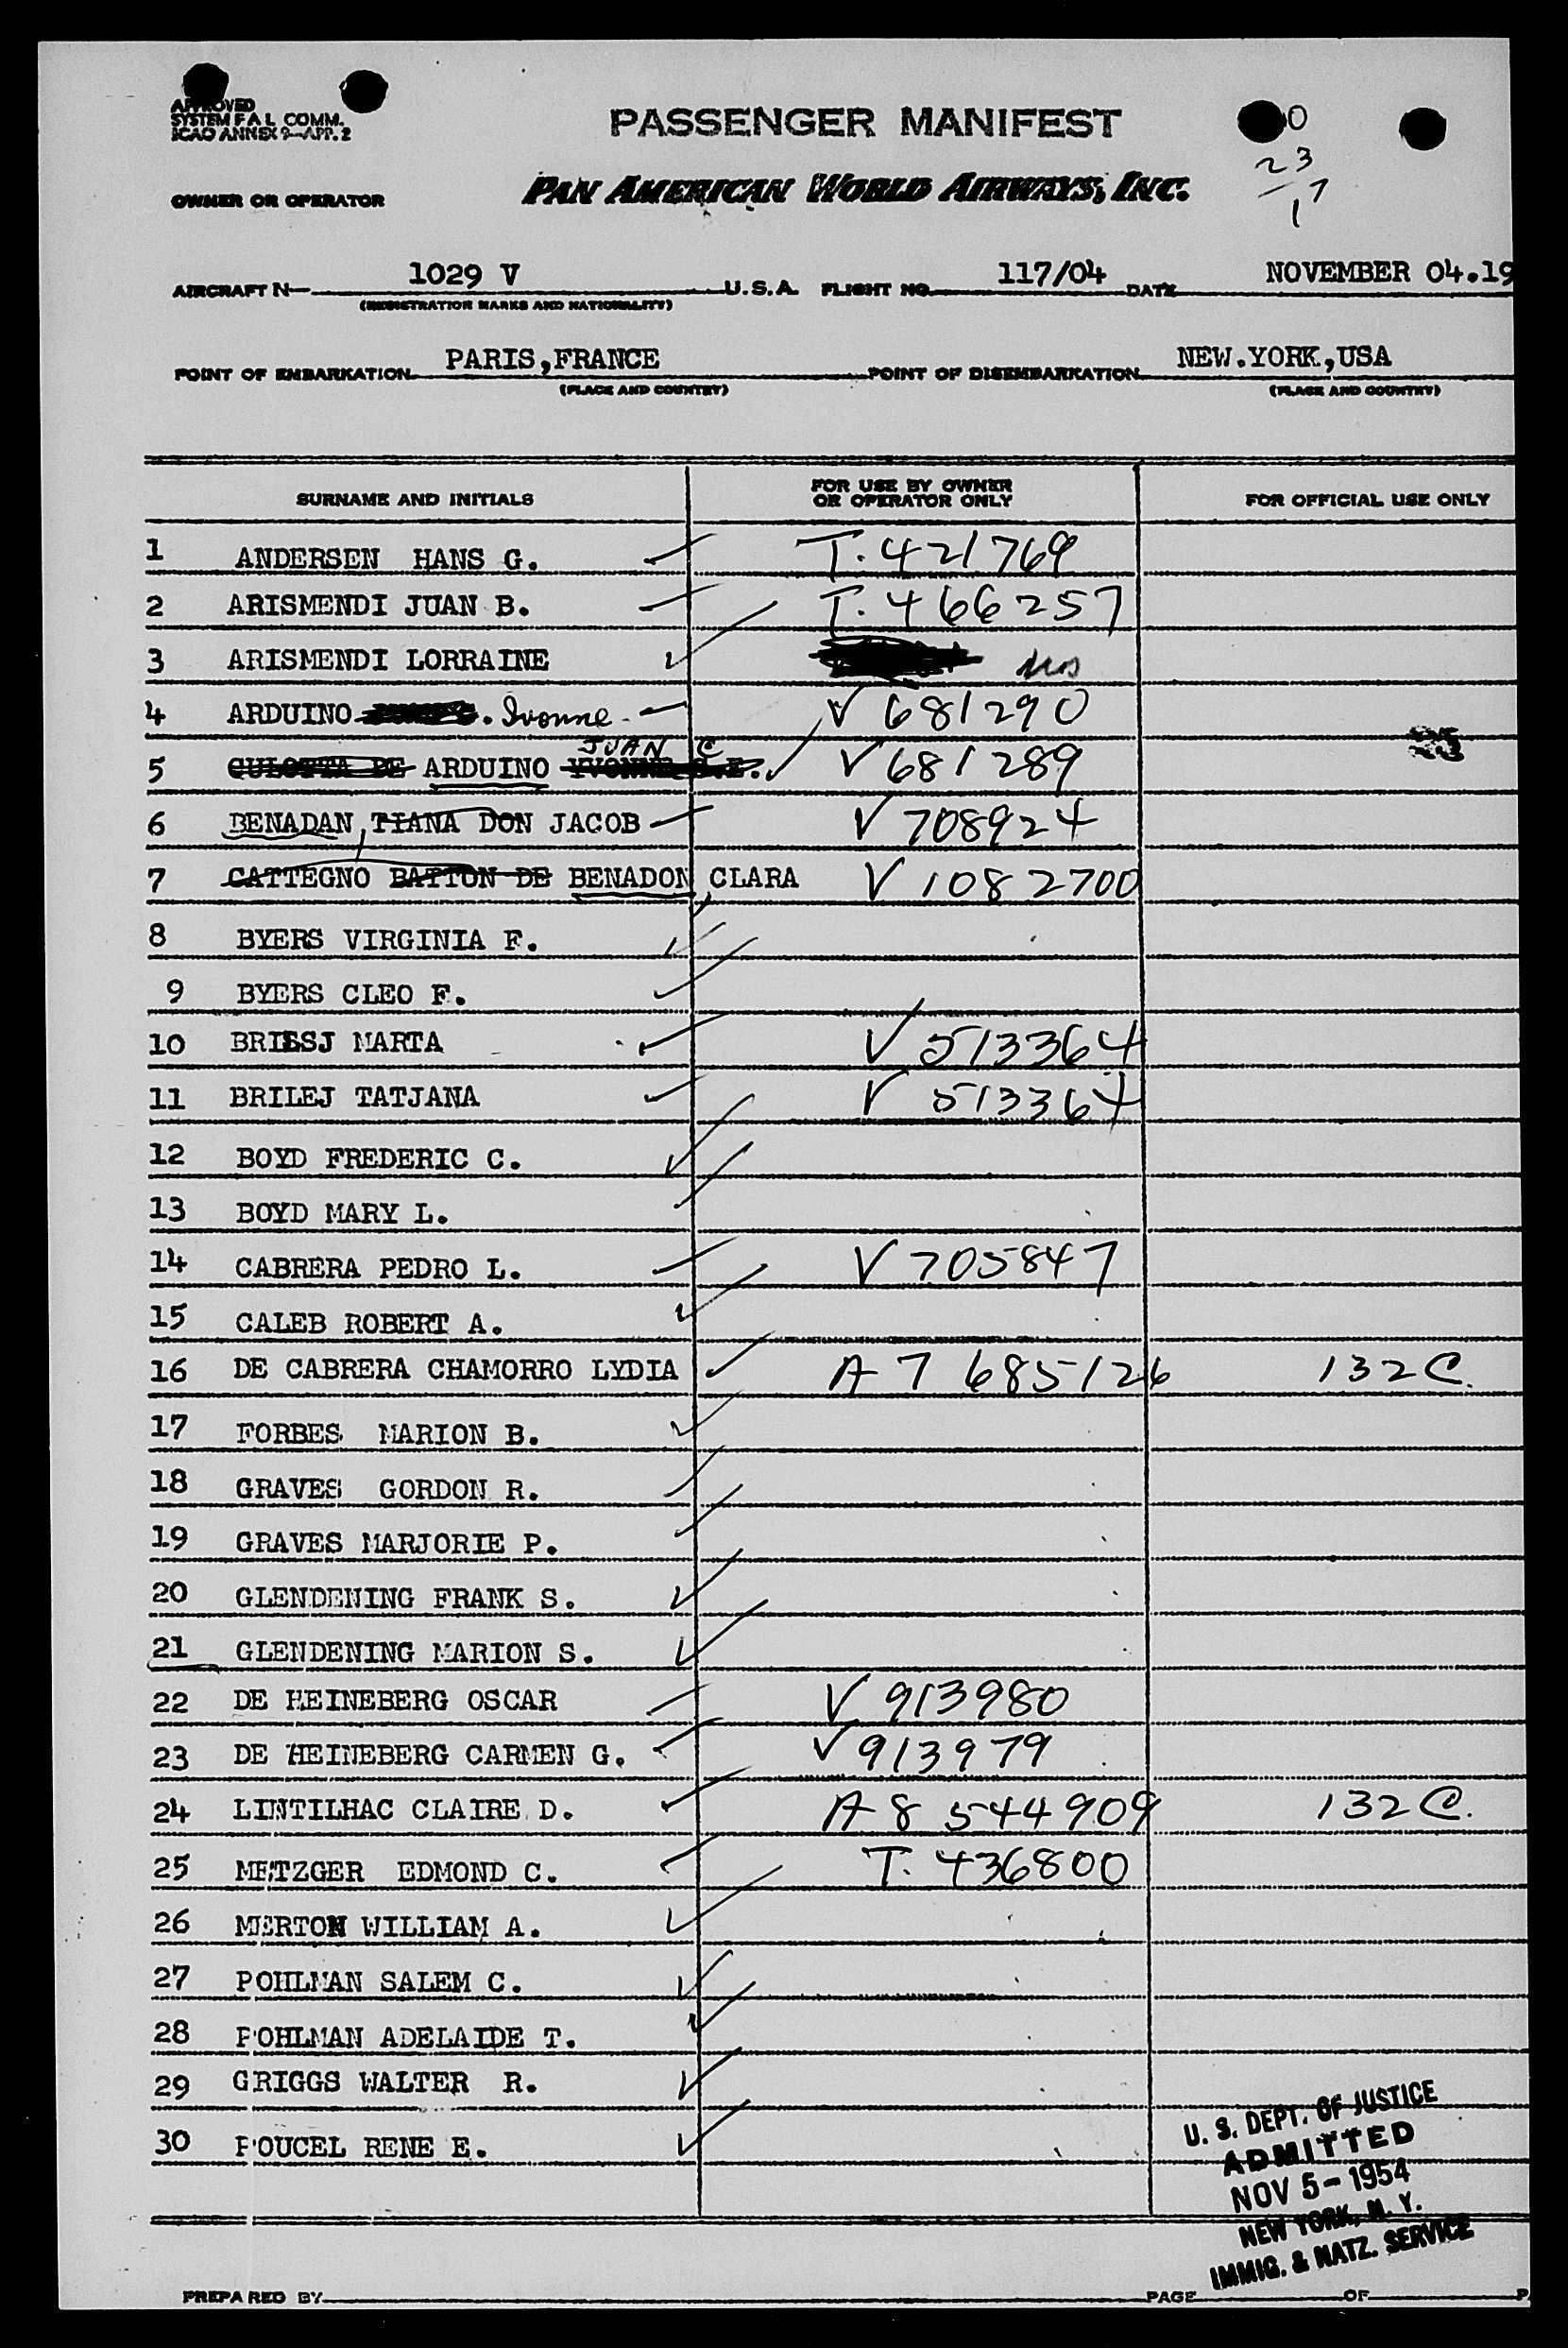 APPROVED
SYSTEM F A L COMM.
ICAO ANNEX 9—APP. 2
PASSENGER MANIFEST
0
23
17
OWNER OR OPERATOR PAN AMERICAN WORLD AIRWAYS, INC.
AIRCRAFT N— 1029 V U.S.A. FLIGHT NO. 117/04 DATE NOVEMBER 04.19
(REGISTRATION MARKS AND NATIONALITY)
POINT OF EMBARKATION PARIS,FRANCE POINT OF DISEMBARKATION NEW.YORK,USA
(PLACE AND COUNTRY) (PLACE AND COUNTRY)
SURNAME AND INITIALS FOR USE BY OWNER OR OPERATOR ONLY FOR OFFICIAL USE ONLY
1 ANDERSEN HANS G. T. 421769
2 ARISMENDI JUAN B. T. 466257
3 ARISMENDI LORRAINE
4 ARDUINO . Ivonne V 681290
JUAN C
5 CULOTTA DE ARDUINO YVONNE V 681289
6 BENADAN, TIANA DON JACOB V 708924
7 CATTEGNO BATTON DE BENADON CLARA V 1082700
8 BYERS VIRGINIA F.
9 BYERS CLEO F.
10 BRIESJ MARTA V 513364
11 BRILEJ TATJANA V 513364
12 BOYD FREDERIC C.
13 BOYD MARY L.
14 CABRERA PEDRO L. V 705847
15 CALEB ROBERT A.
16 DE CABRERA CHAMORRO LYDIA A 7 685126 132 C.
17 FORBES MARION B.
18 GRAVES GORDON R.
19 GRAVES MARJORIE P.
20 GLENDENING FRANK S.
21 GLENDENING MARION S.
22 DE HEINEBERG OSCAR V 913980
23 DE HEINEBERG CARMEN G. V 913979
24 LINTILHAC CLAIRE D. A 8 544909 132 C.
25 METZGER EDMOND C. T. 436800
26 MERTON WILLIAM A.
27 POHLMAN SALEM C.
28 POHLMAN ADELAIDE T.
29 GRIGGS WALTER R.
30 POUCEL RENE E.
U. S. DEPT. OF JUSTICE
ADMITTED
NOV 5 - 1954
NEW YORK, N. Y.
IMMIG. & NATZ. SERVICE
PREPARED BY PAGE OF P